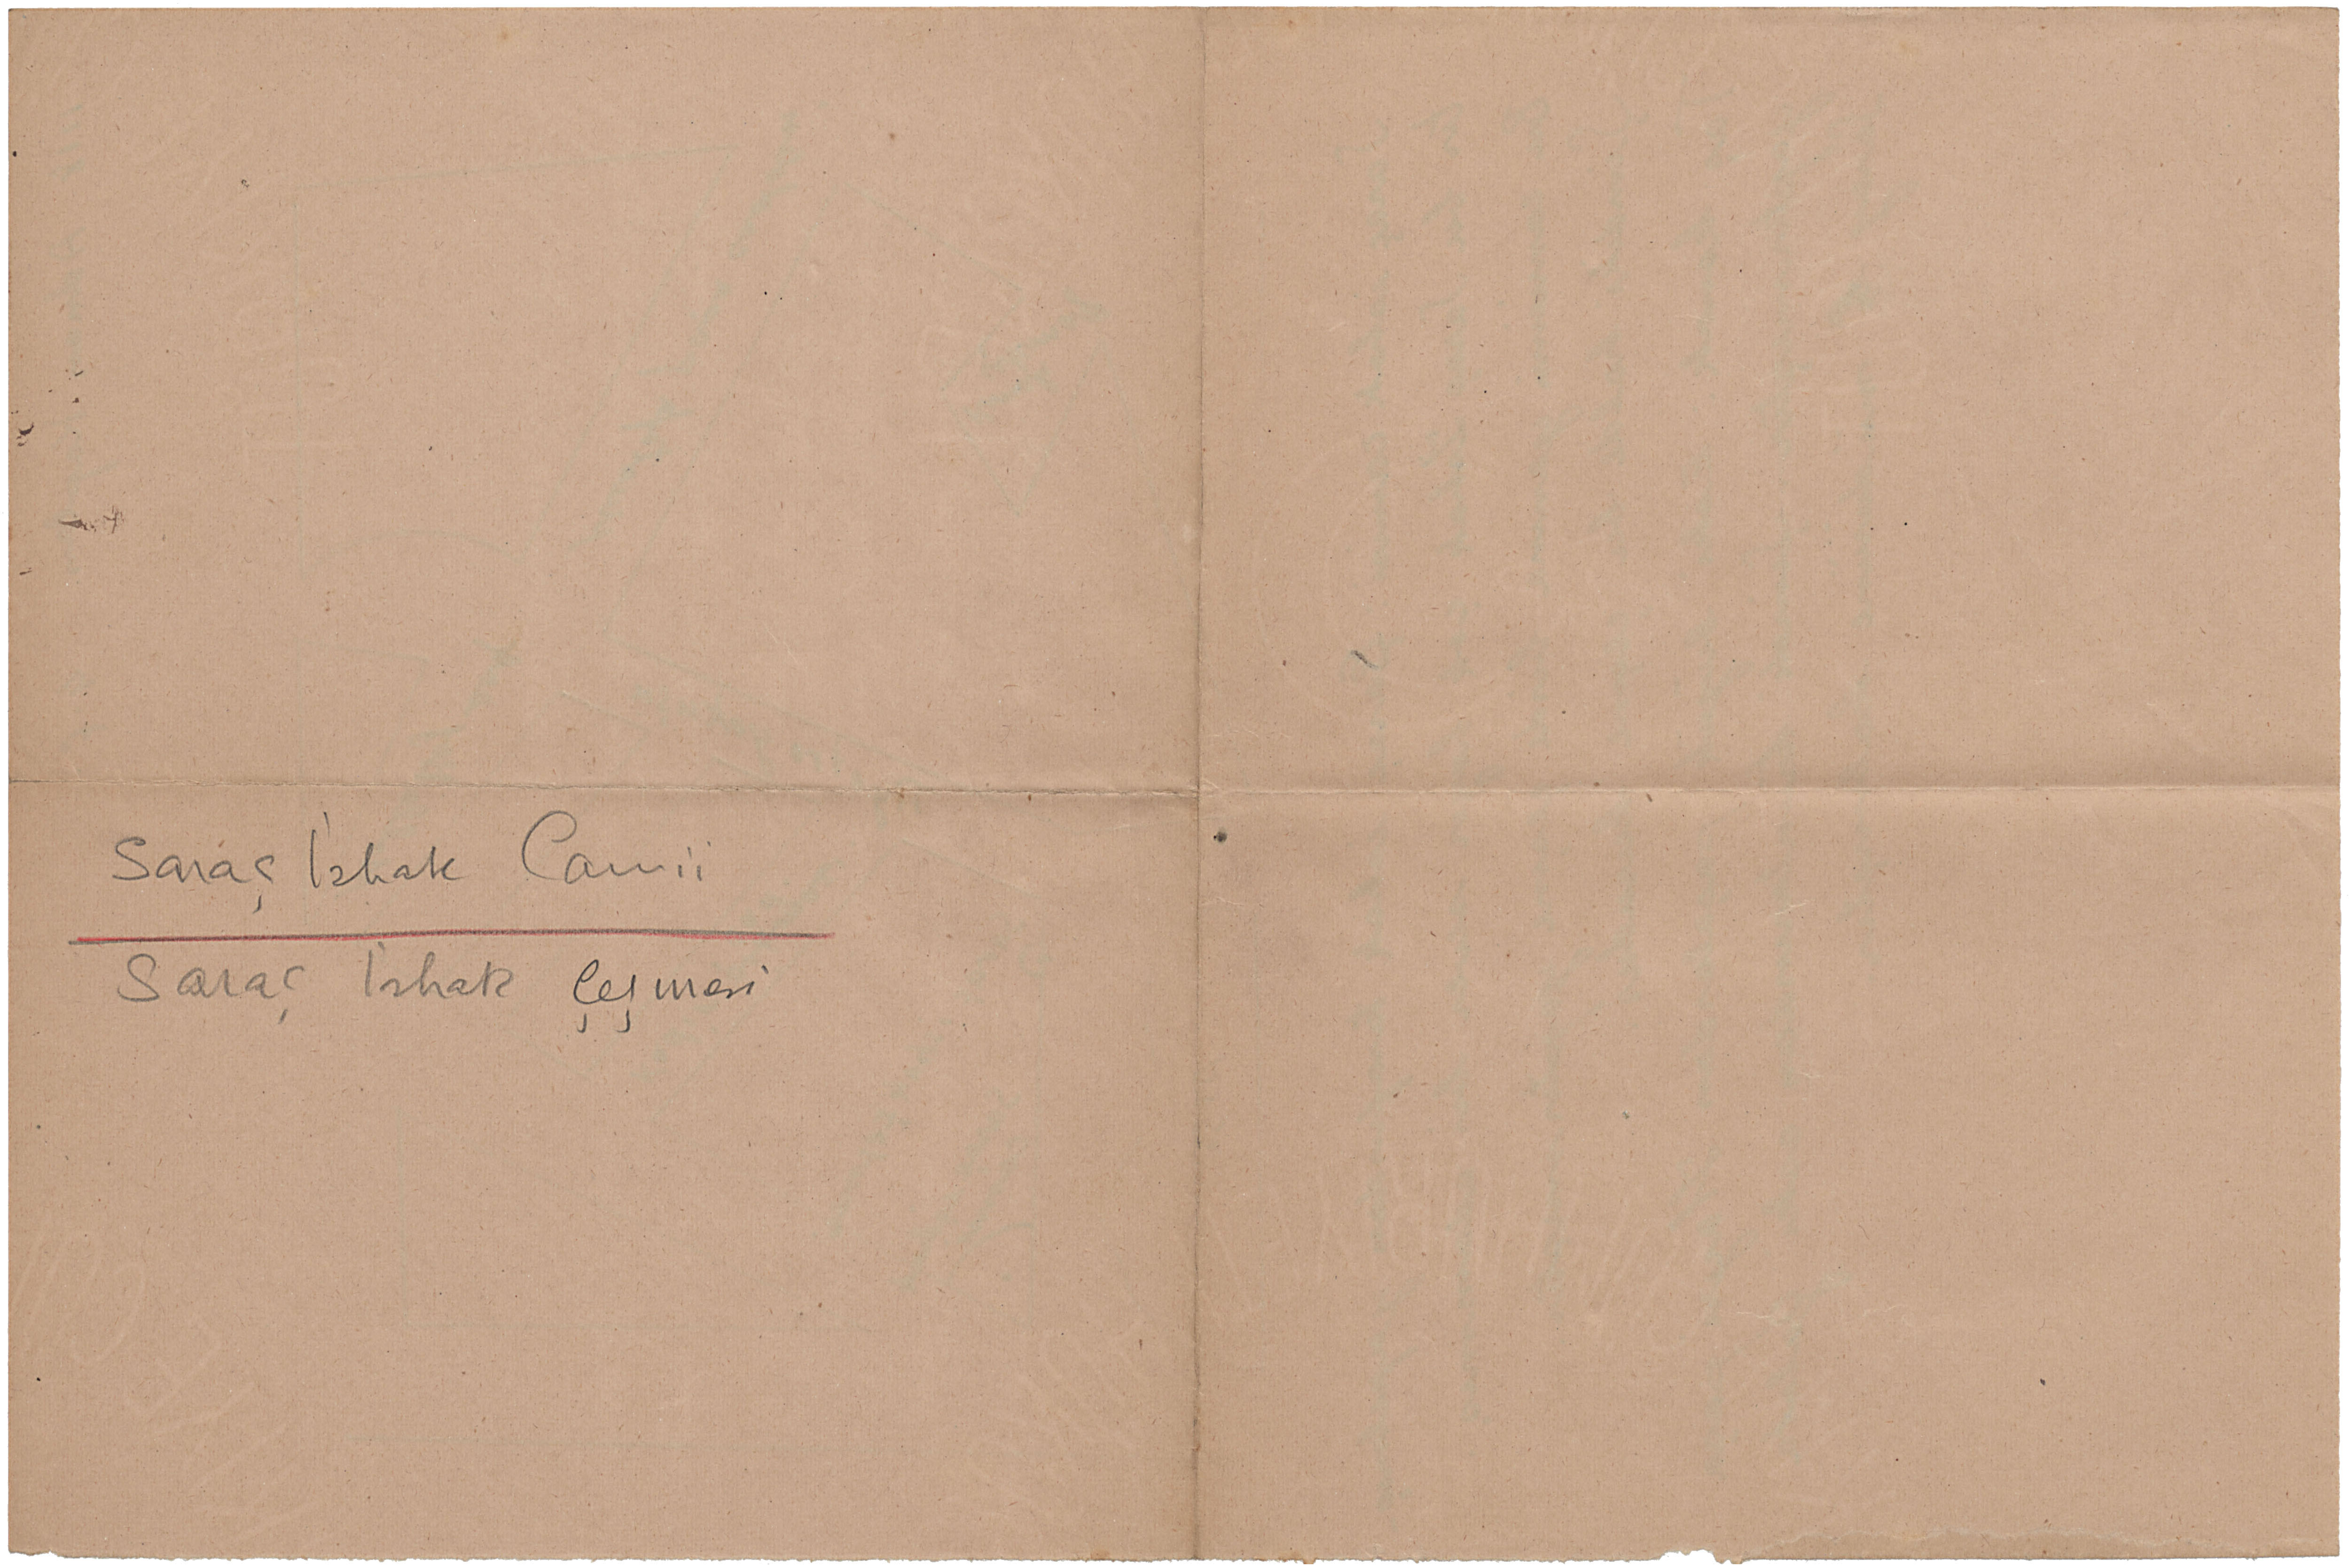 Saraç İshak Camii
Saraç İshak Çeşmesi